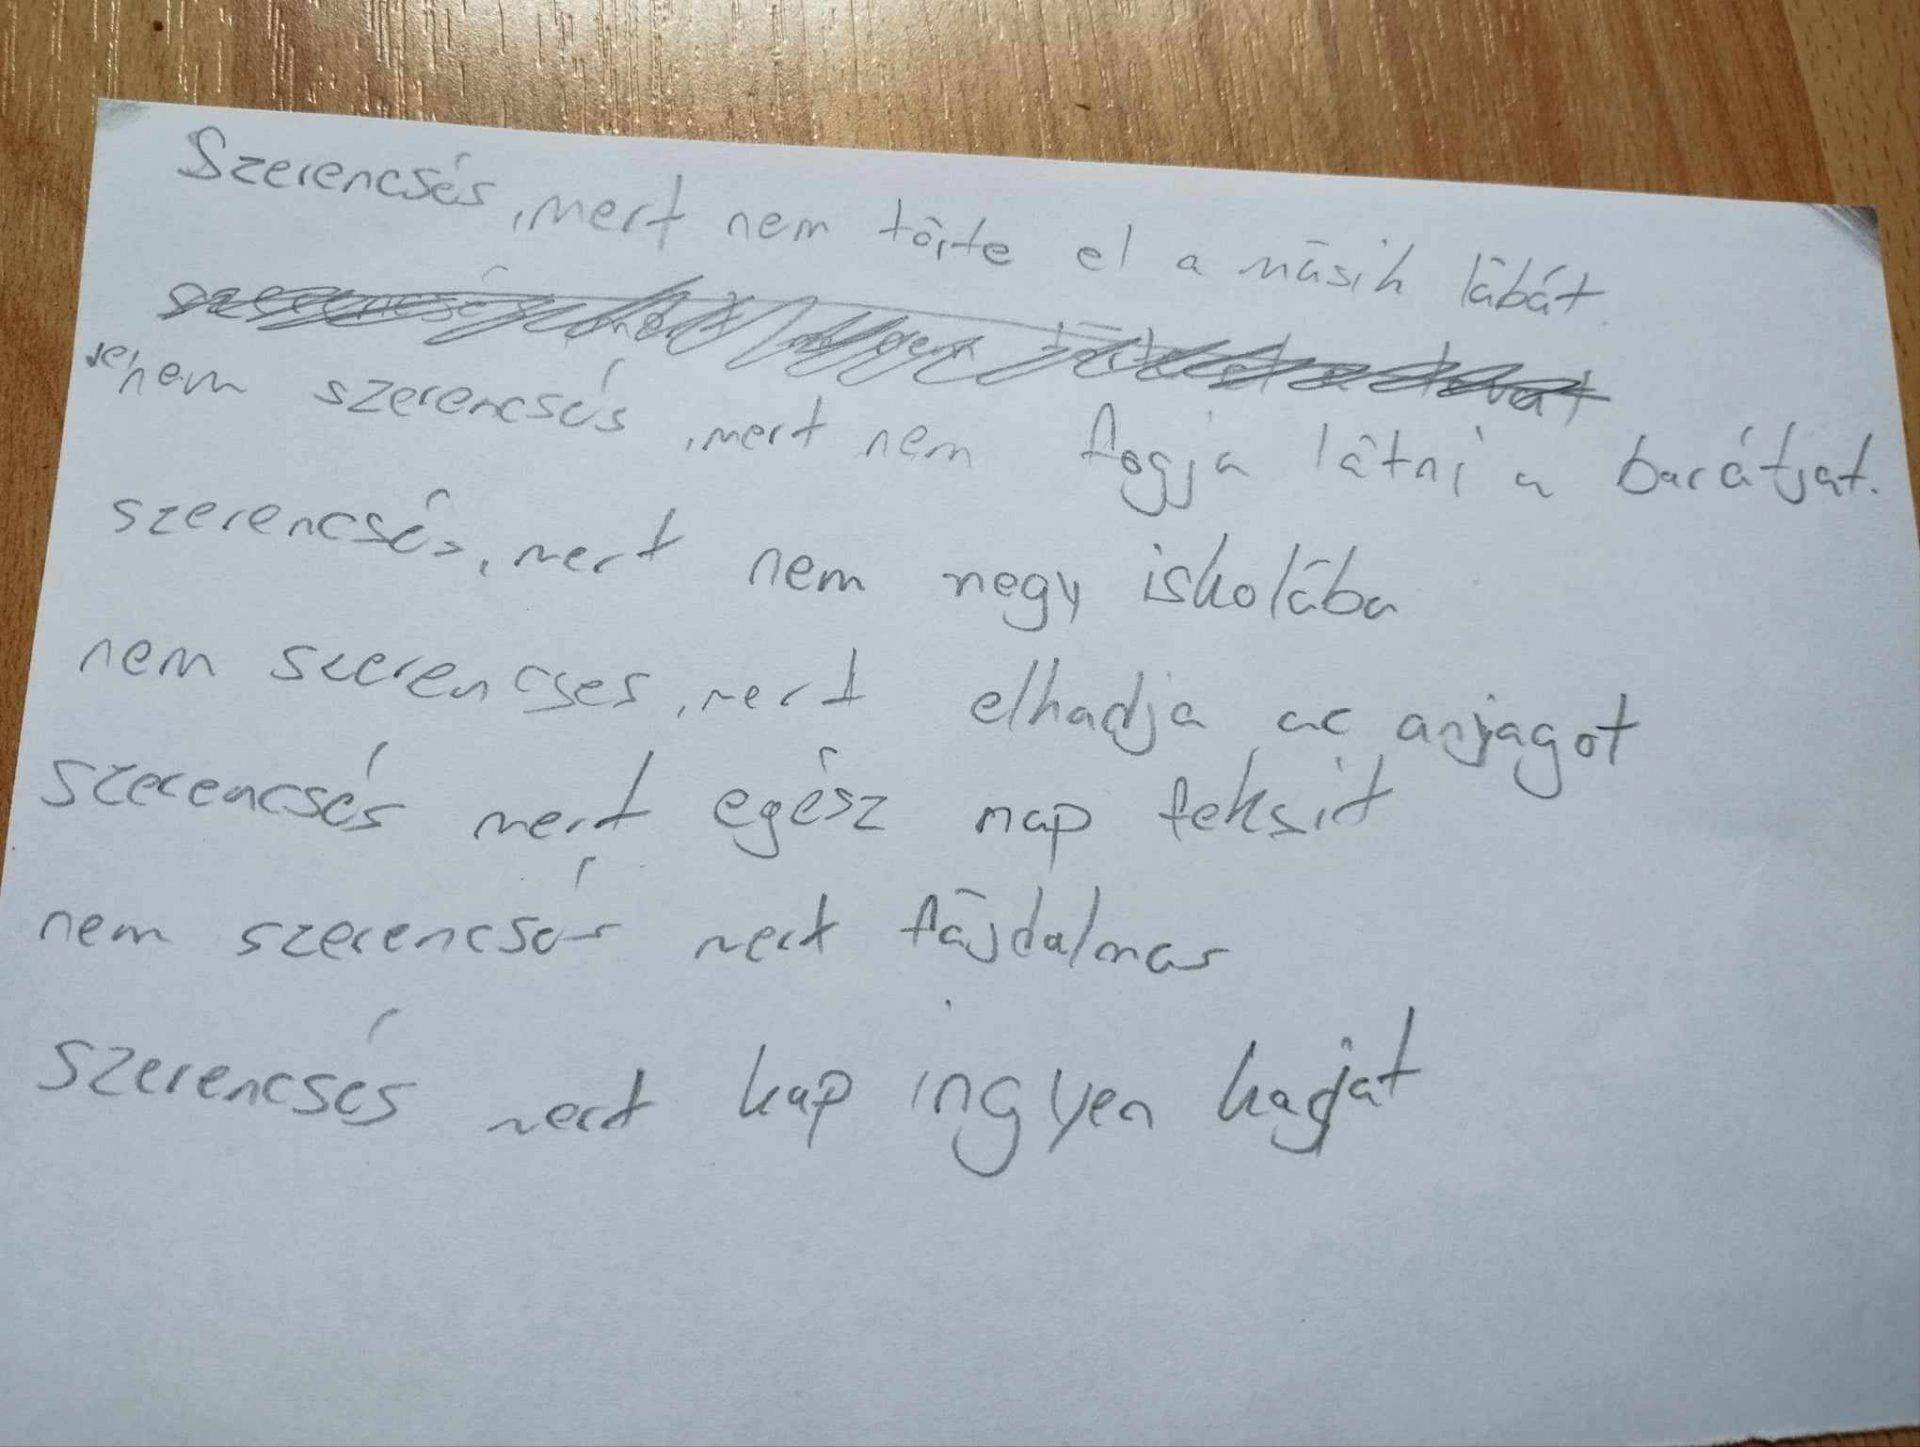 Szerencsés, mert nem törte el a másik lábát.
nem szerencsés, mert nem fogja látni a barátjat.
szerencsés, mert nem megy iskolába
nem szerencses, mert elhadja az anjagot
szerencsés mert egész nap feksit
nem szerencsés mert fájdalmas
szerencsés mert kap ingyen kagját